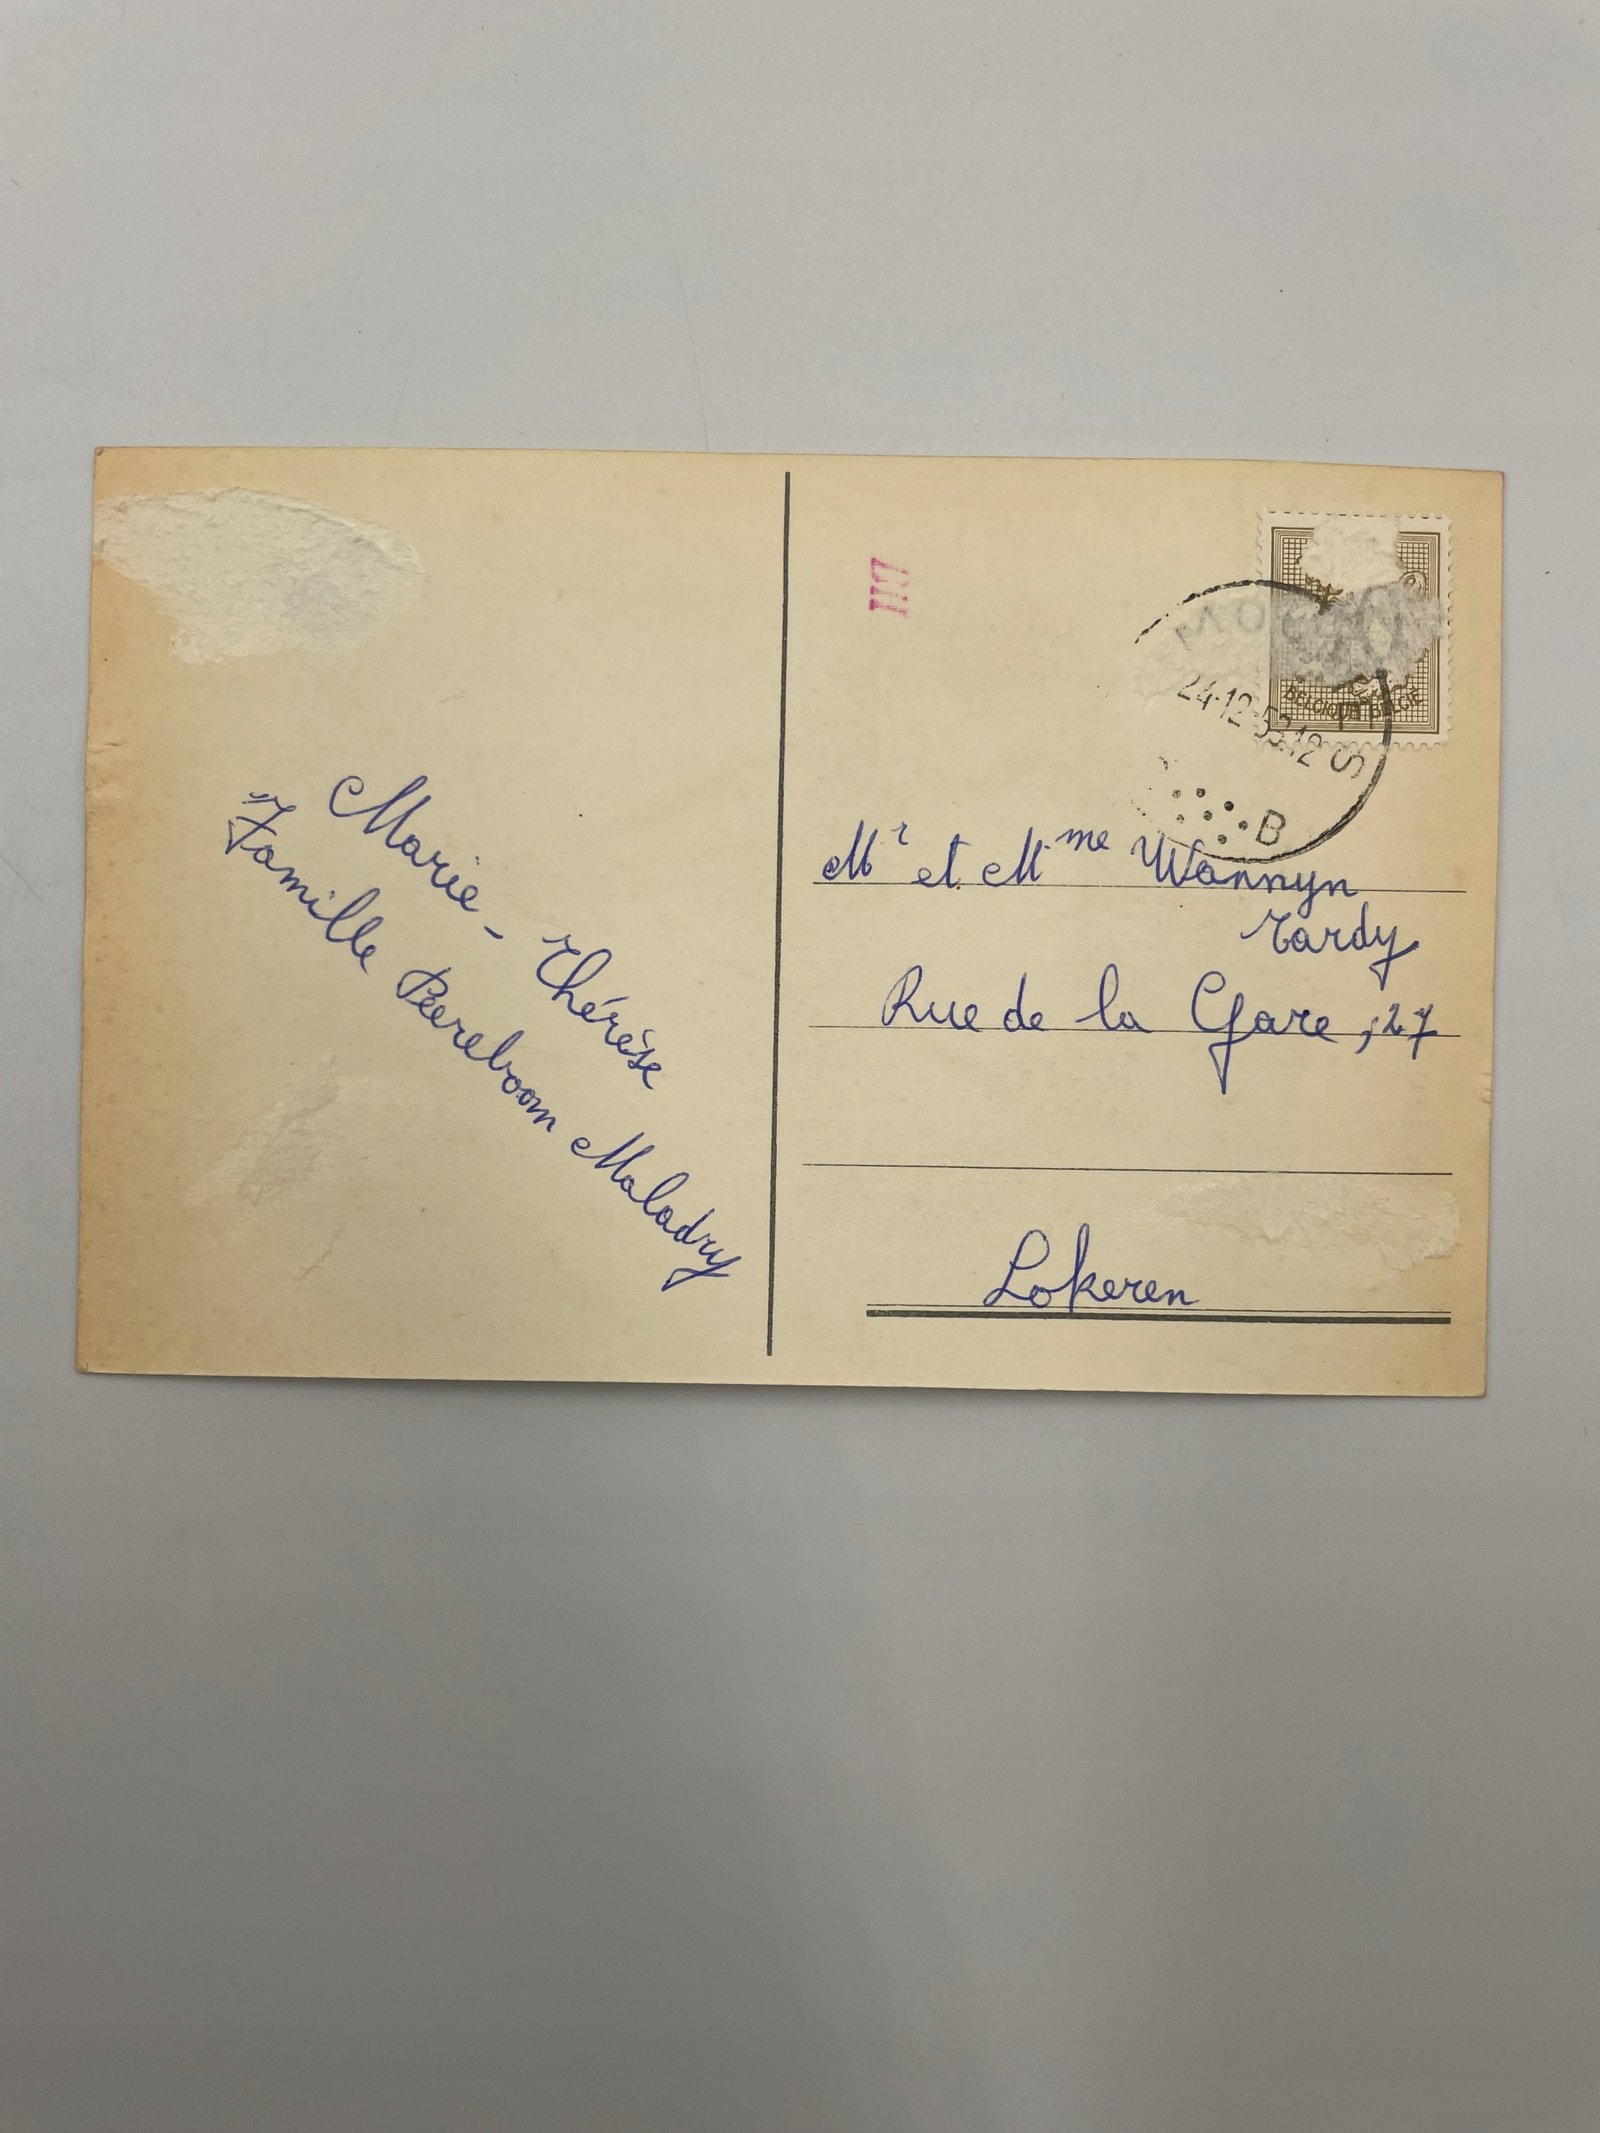 Marie-Thérèse
Famille Peereboom Maladry
BELGIQUE BELGIË
24-12-53.12
B
Mr et Mme Wannyn
Tardy
Rue de la Gare, 27
Lokeren